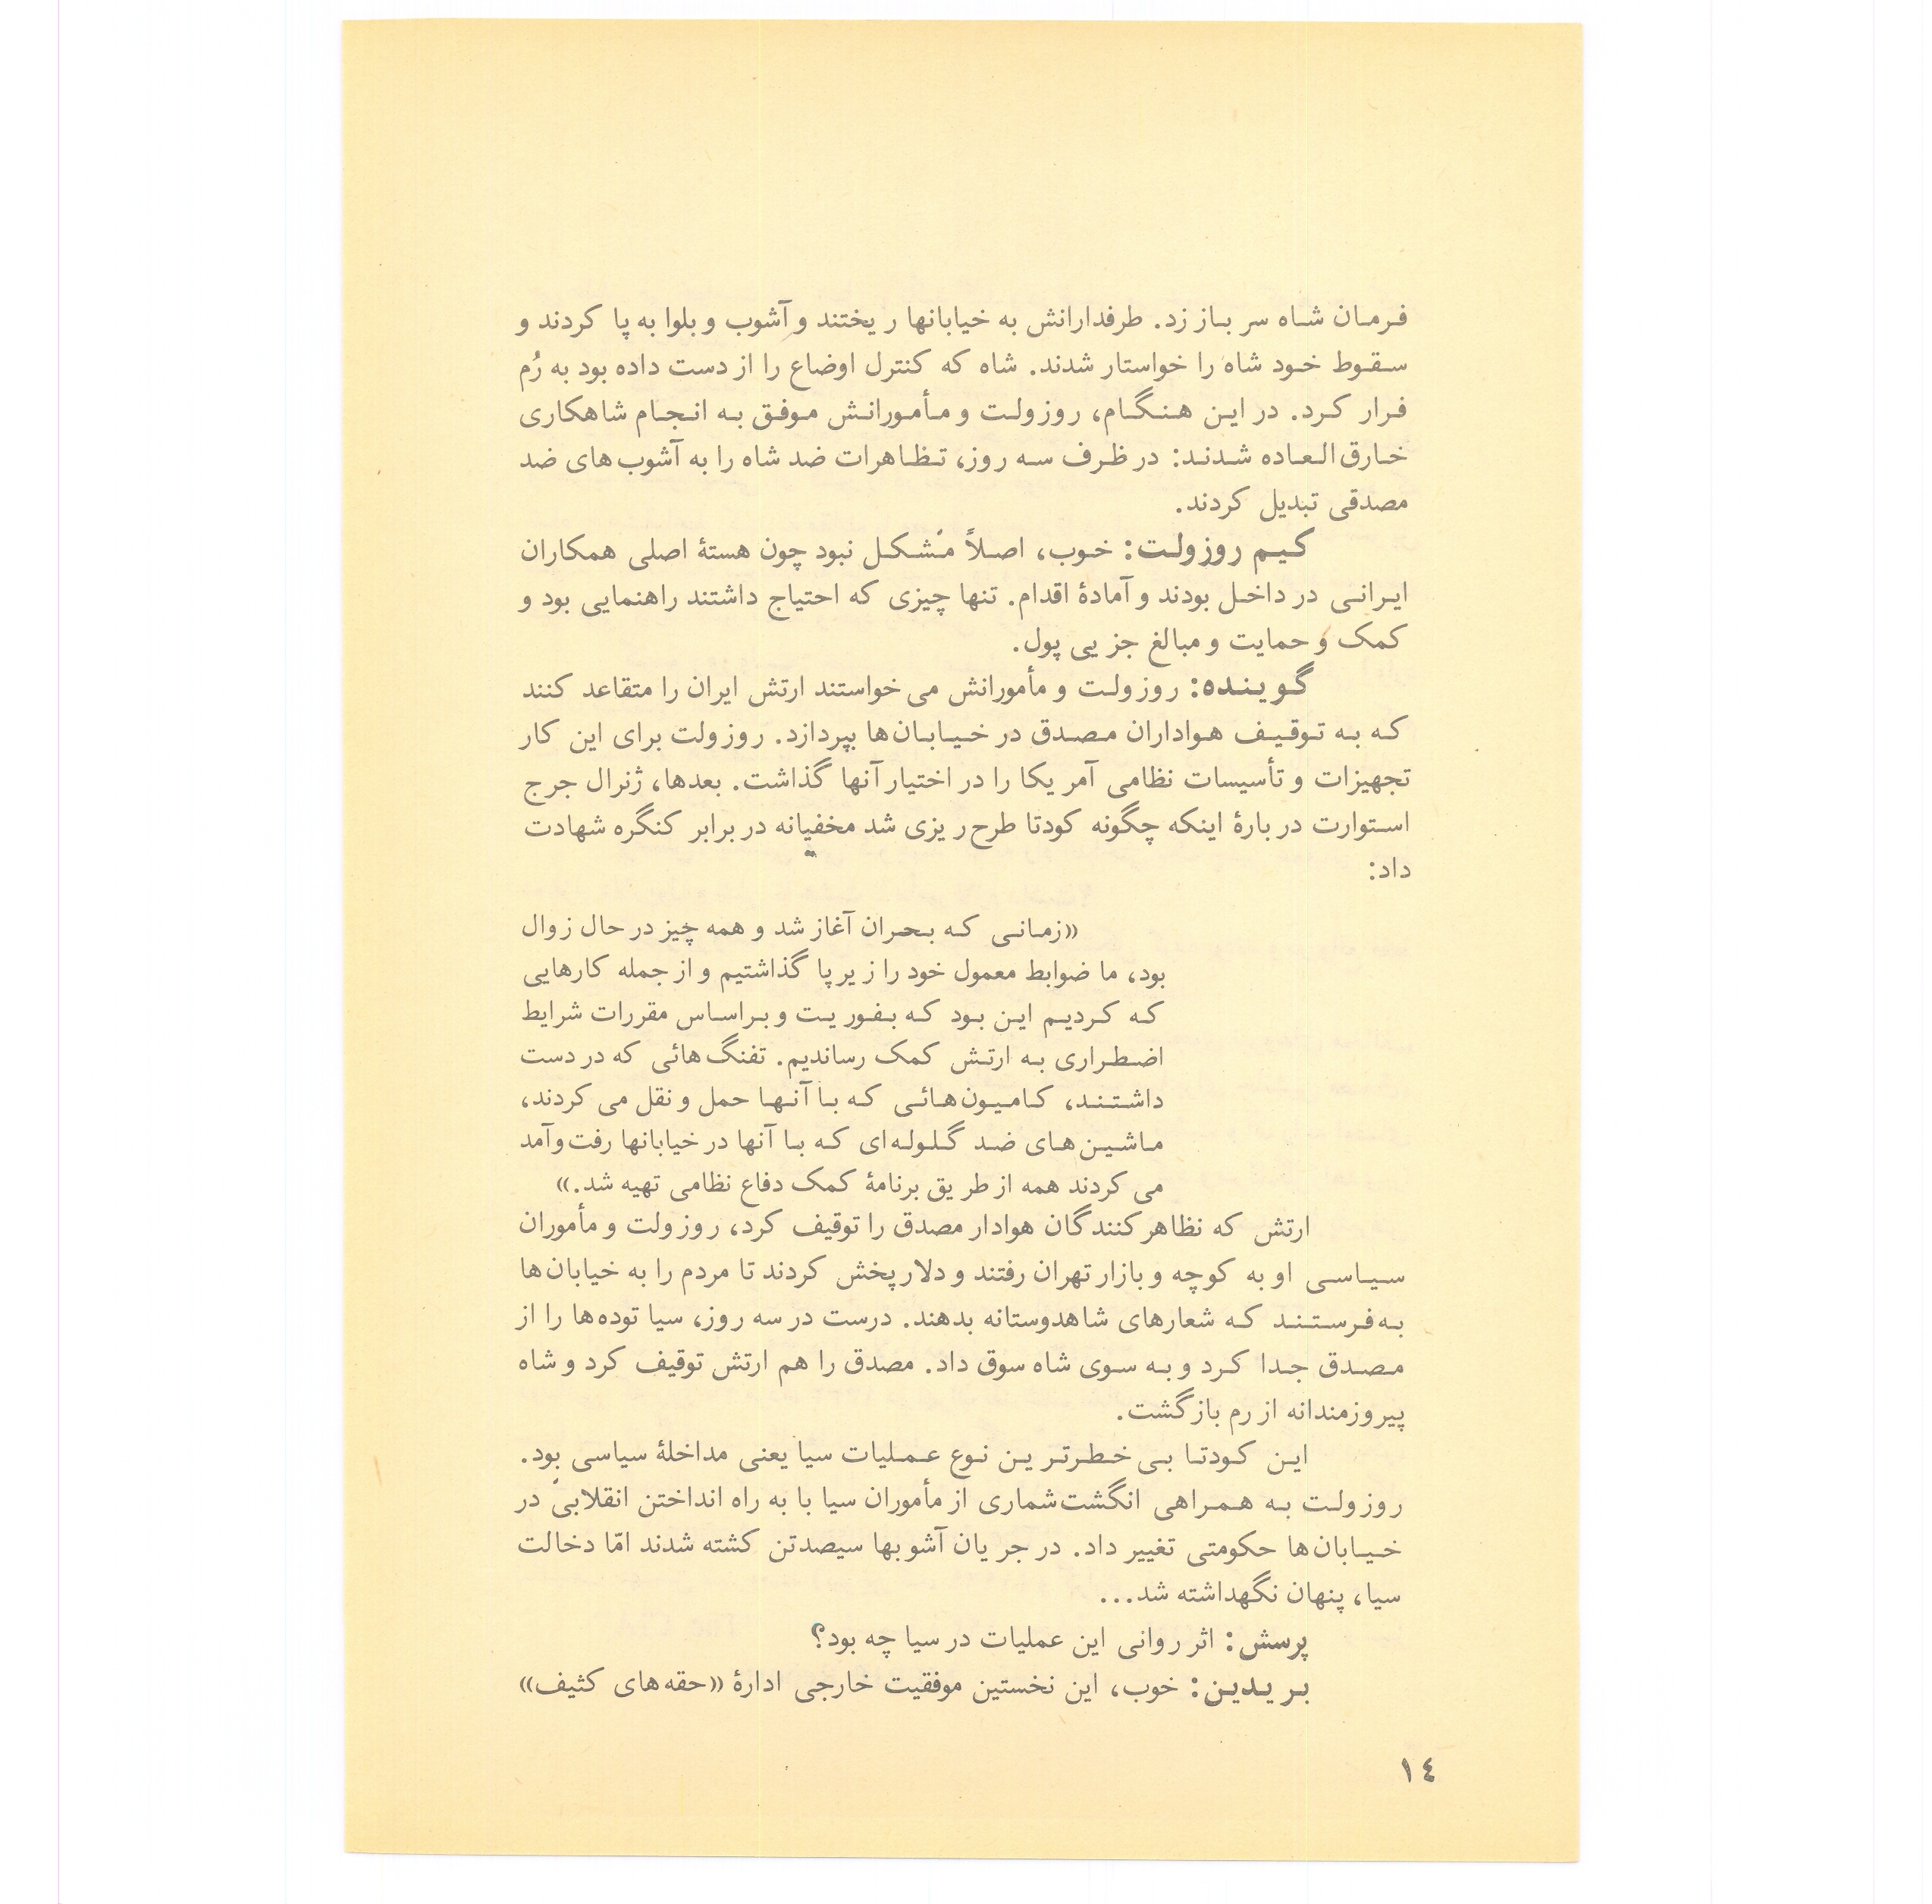 فرمان شاه سر باز زد. طرفدارانش به خیابانها ریختند و آشوب و بلوا به پا کردند و
سقوط خود شاه را خواستار شدند. شاه که کنترل اوضاع را از دست داده بود به رُم
فرار کرد. در این هنگام، روزولت و مأمورانش موفق به انجام شاهکاری
خارق‌العاده شدند: در ظرف سه روز، تظاهرات ضد شاه را به آشوب‌های ضد
مصدقی تبدیل کردند.
کیم روزولت: خوب، اصلاً مشکل نبود چون هستهٔ اصلی همکاران
ایرانی در داخل بودند و آمادهٔ اقدام. تنها چیزی که احتیاج داشتند راهنمایی بود و
کمک و حمایت و مبالغ جزیی پول.
گوینده: روزولت و مأمورانش می‌خواستند ارتش ایران را متقاعد کنند
که به توقیف هواداران مصدق در خیابان‌ها بپردازد. روزولت برای این کار
تجهیزات و تأسیسات نظامی آمریکا را در اختیار آنها گذاشت. بعدها، ژنرال جرج
استوارت دربارهٔ اینکه چگونه کودتا طرح‌ریزی شد مخفیانه در برابر کنگره شهادت
داد:
«زمانی که بحران آغاز شد و همه چیز در حال زوال
بود، ما ضوابط معمول خود را زیر پا گذاشتیم و از جمله کارهایی
که کردیم این بود که بفوریت و براساس مقررات شرایط
اضطراری به ارتش کمک رساندیم. تفنگ‌هائی که در دست
داشتند، کامیون‌هائی که با آنها حمل و نقل می‌کردند،
ماشین‌های ضد گلوله‌ای که با آنها در خیابانها رفت‌وآمد
می‌کردند همه از طریق برنامهٔ کمک دفاع نظامی تهیه شد.»
ارتش که نظاهرکنندگان هوادار مصدق را توقیف کرد، روزولت و مأموران
سیاسی او به کوچه و بازار تهران رفتند و دلار پخش کردند تا مردم را به خیابان‌ها
به‌فرستند که شعارهای شاهدوستانه بدهند. درست در سه روز، سیا توده‌ها را از
مصدق جدا کرد و به سوی شاه سوق داد. مصدق را هم ارتش توقیف کرد و شاه
پیروزمندانه از رم بازگشت.
این کودتا بی‌خطرترین نوع عملیات سیا یعنی مداخلهٔ سیاسی بود.
روزولت به همراهی انگشت‌شماری از مأموران سیا با به راه انداختن انقلابی در
خیابان‌ها حکومتی تغییر داد. در جریان آشوبها سیصدتن کشته شدند امّا دخالت
سیا، پنهان نگهداشته شد...
پرسش: اثر روانی این عملیات در سیا چه بود؟
بریدین: خوب، این نخستین موفقیت خارجی ادارهٔ «حقه‌های کثیف»
۱٤